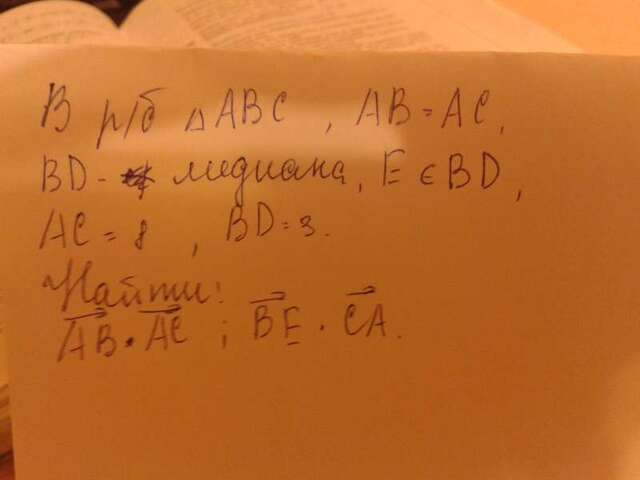 В р/б △ABC, AB=AC,
BD- медиана, E∈BD,
AC=8, BD=3.
Найти:
AB·AC; BE·CA.